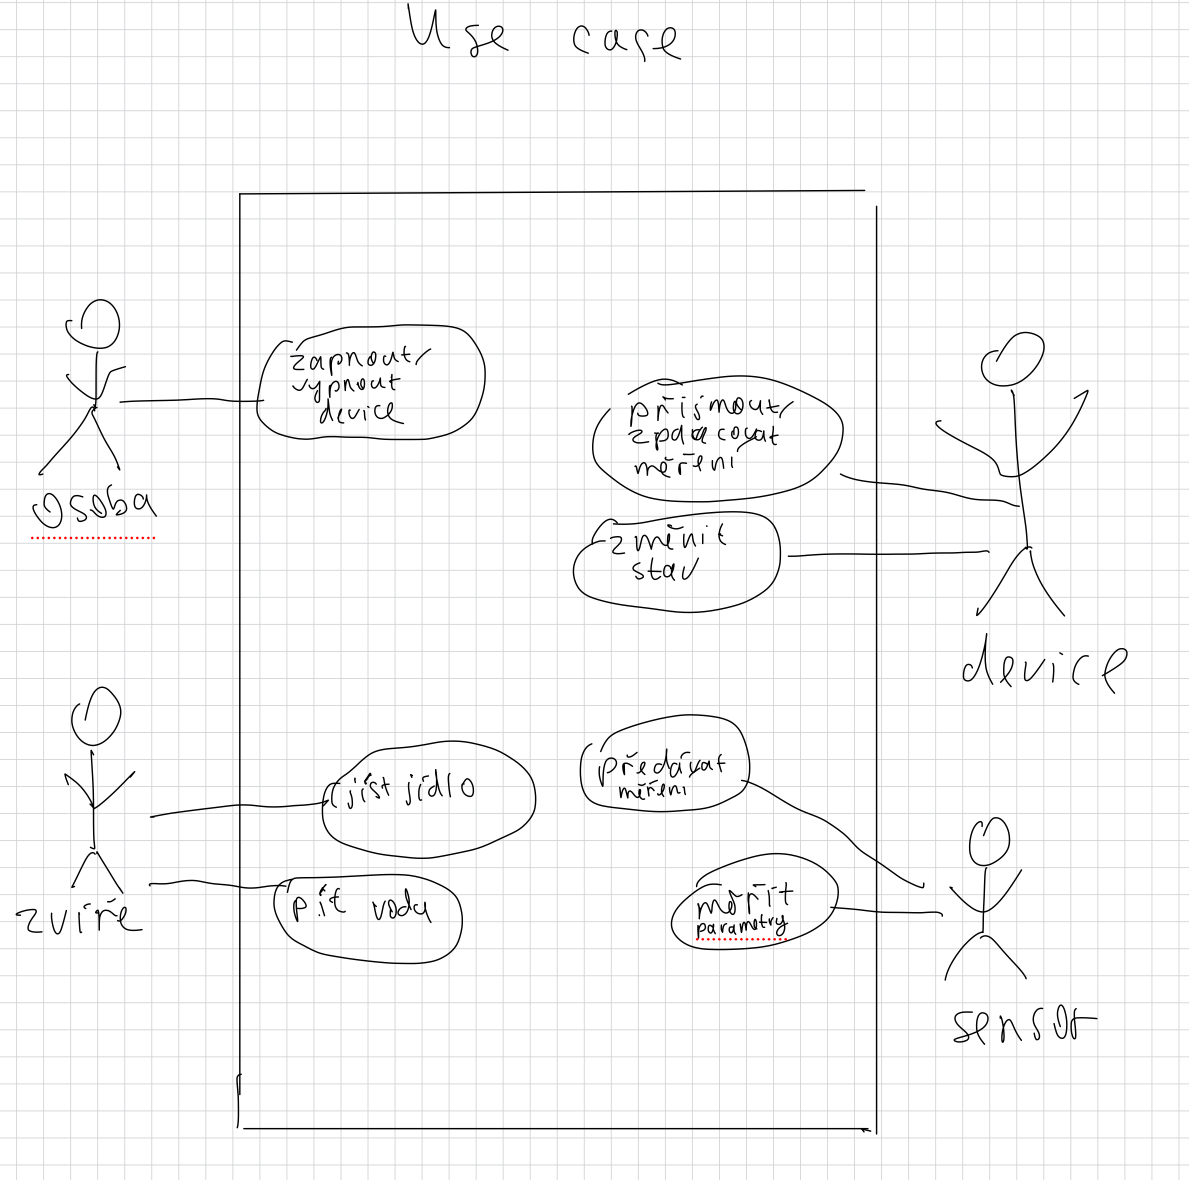 Use case
zapnout/
vypnout
device
osoba
přijmout/
zpdacovat
měření
změnit
stav
device
jíst jídlo
pít vodu
zvíře
předávat
měření
měřit
parametry
sensor